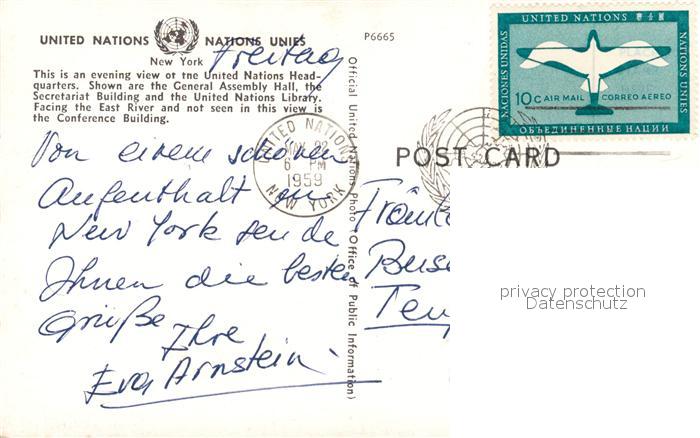 UNITED NATIONS NATIONS UNIES
New York
Freitag
P6665
This is an evening view of the United Nations Head-
quarters. Shown are the General Assembly Hall, the
Secretariat Building and the United Nations Library.
Facing the East River and not seen in this view is
the Conference Building.
Official United Nations Photo (Office of Public Information)
UNITED NATIONS
6 PM
1959
NEW YORK
UNITED NATIONS
NACIONES UNIDAS
NATIONS UNIES
10c AIR MAIL CORREO AEREO
ОБЪЕДИНЕННЫЕ НАЦИИ
POST CARD
Von einem schönen
Aufenthalt in
New York sende
Ihnen die besten
Grüße
Ihre
Eva Arnstein.
privacy protection
Datenschutz